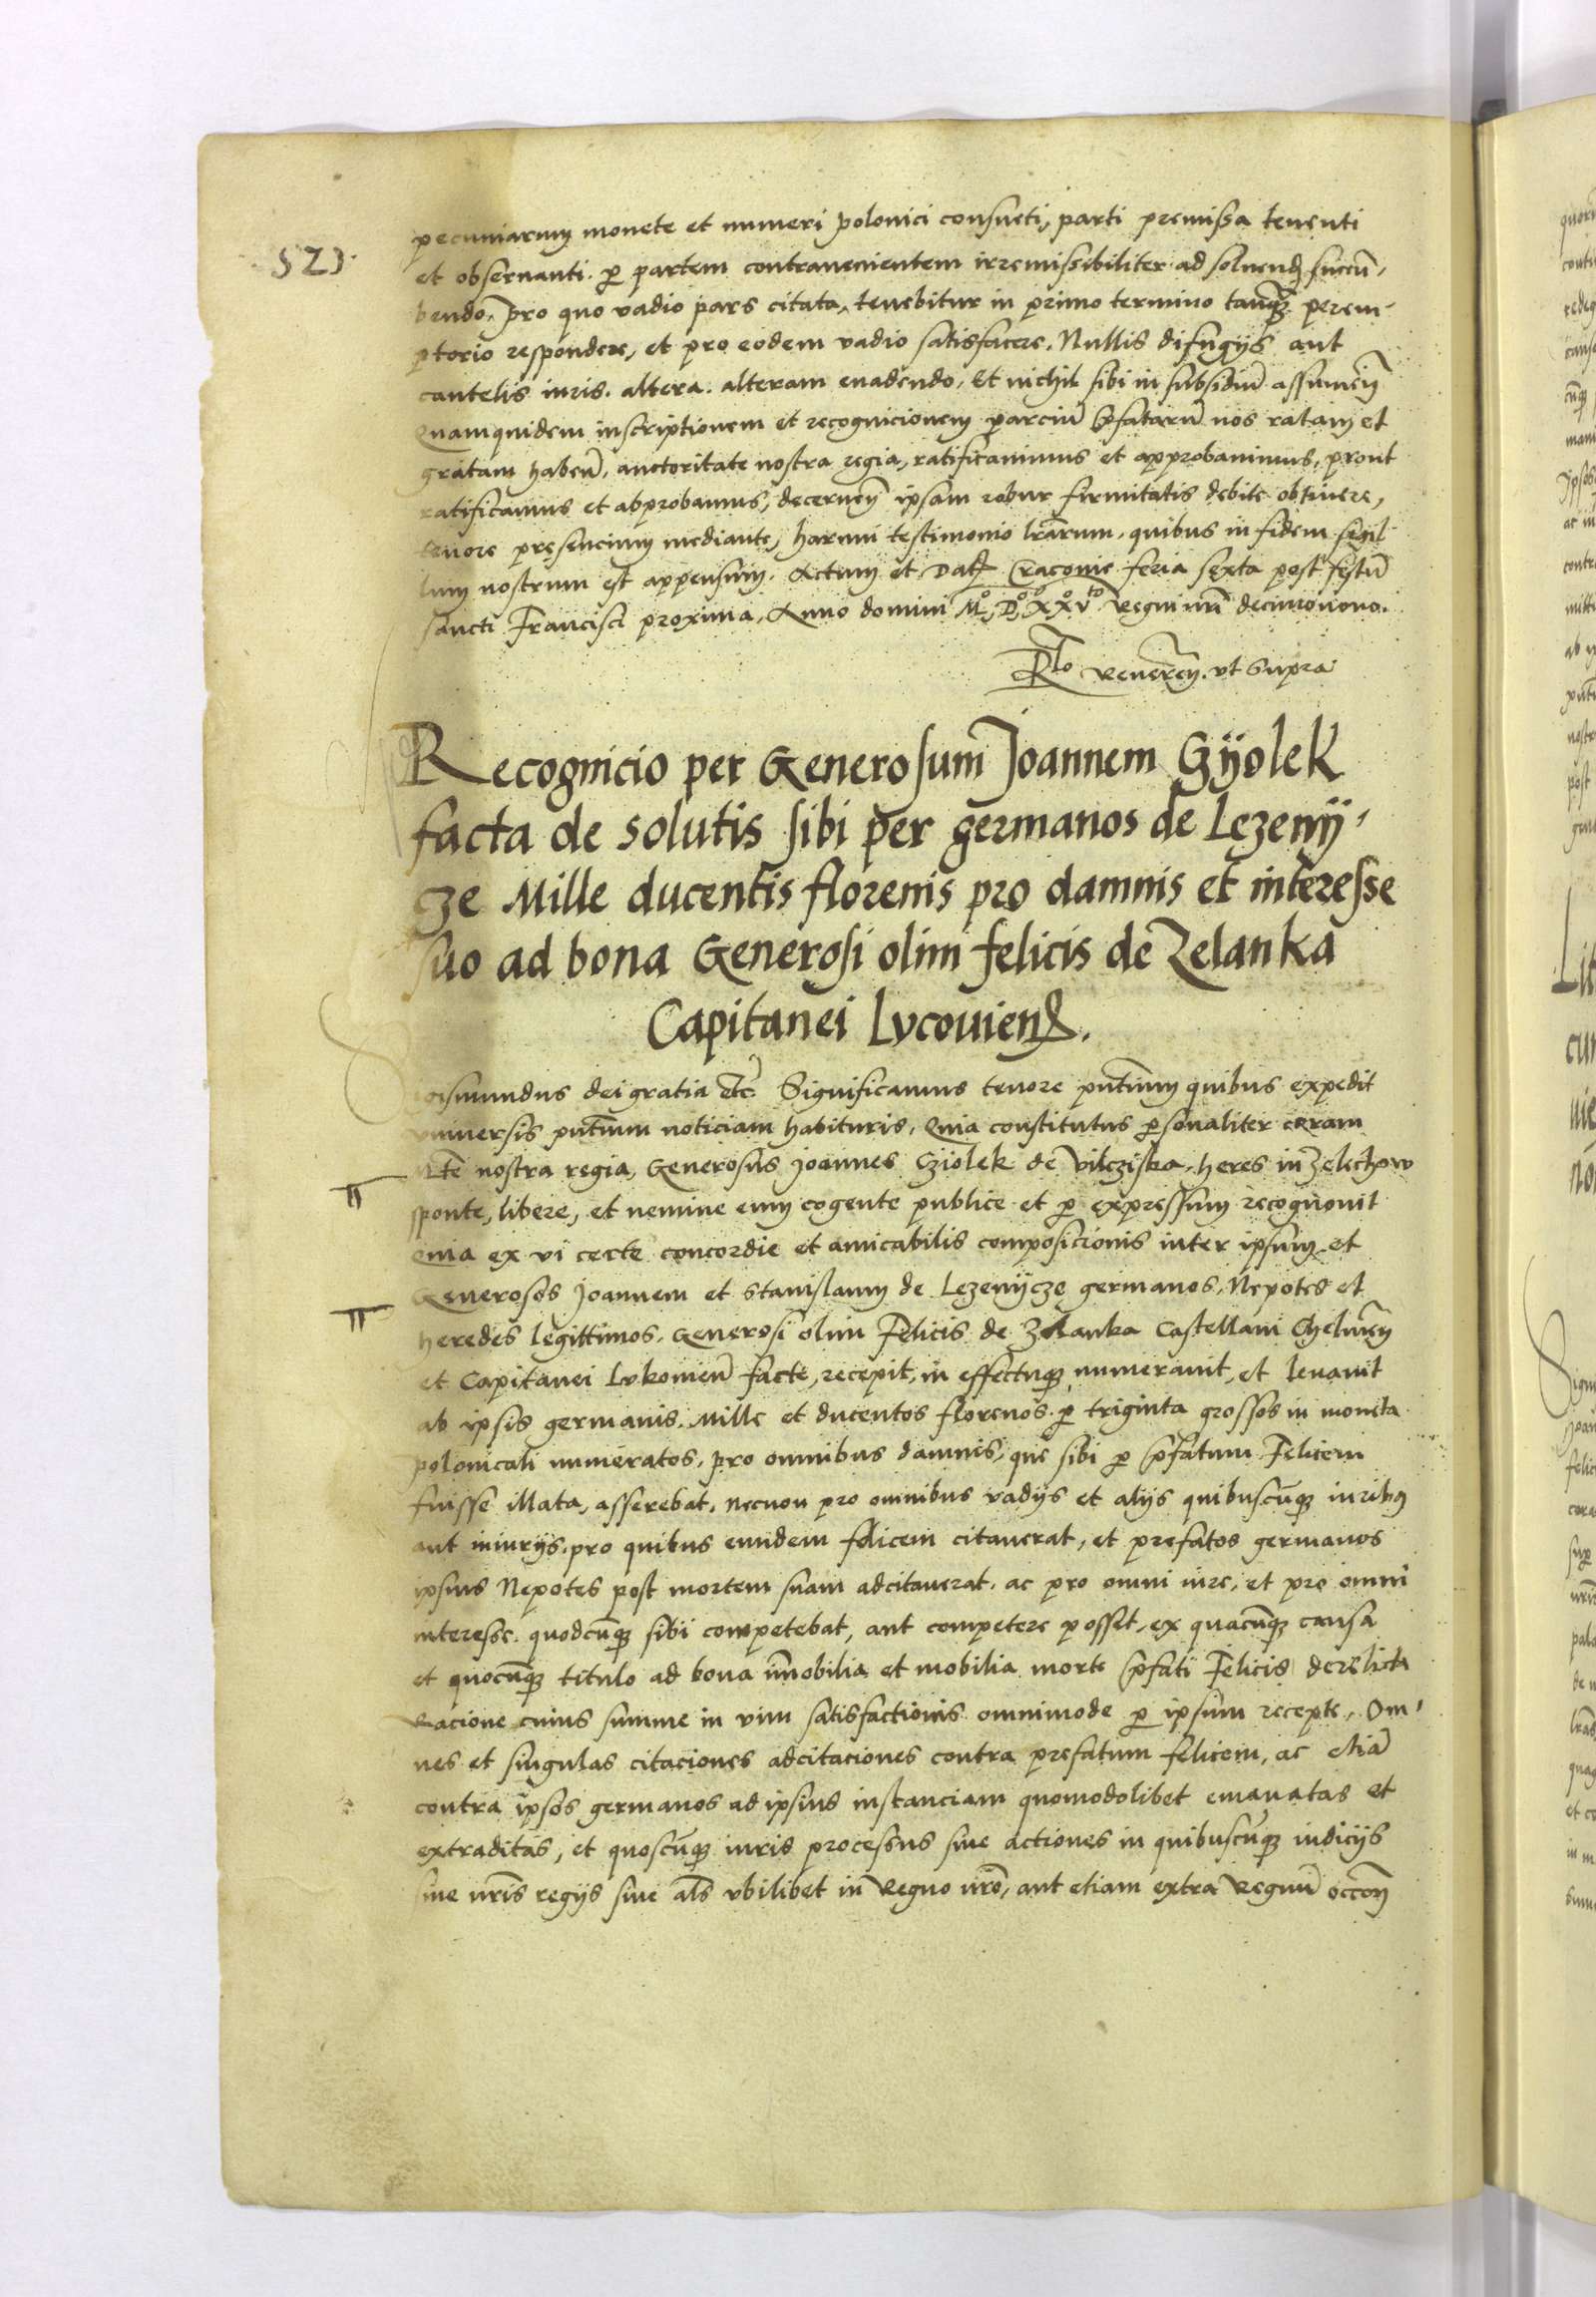 pecuniarum monete et numeri polonici consueti, parti premissa tenenti
523.
et observanti. p̱ partem contravenientem irremissibiliter ad solvend succū,
bendo. Pro quo vadio pars citata, tenebitur in primo termino tanq̄ꝫ perem-
ptorio respondere, et pro eodem vadio satisfacere. Nullis difugijs aut
cautelis iuris. altera. alteram evadendo. Et nichil sibi in subsidiū assumeñ
Quamquidem inscriptionem et recognicionem parciū p̄fatarū nos ratam et
gratam habeñ. auctoritate nostra regia, ratificavimus et approbavimus, prout
ratificamus et abprobamus, decerneñ ipsam robur firmitatis debite obtinere,
tenore presencium mediante, harum testimonio lrārum. quibus in fidem sigil
lum nostrum est appensum. Actum et Dat Cracovie feria sexta post festū
sancti Francisci proxima, Anno domini Mo, Do, XoXoVto Regni nrī decimonono.
Rlo Reverēn. vt Supra
Recognicio per Generosum Joannem Gÿolek
facta de solutis sibi per germanos de Lezenÿ,
cze Mille ducentis florenis pro damnis et interesse
suo ad bona Generosi olim felicis de Zelanka
Capitanei Lvcovien.
Sigismundus dei gratia etc̄ Significamus tenore pn̄tium quibus expedit
vniversis pn̄tium noticiam habituris, Quia constitutus p̱sonaliter coram
Mte nostra regia, Generosus Joannes Cziolek de Vilcziska. heres in Zelechow
sponte, libere, et nemine eum cogente publice et p̱ expressum recognovit
Quia ex vi certe concordie et amicabilis composicionis inter ipsum et
Generosos Joannem et Stanislaum de Lezenÿcze germanos, Nepotes et
heredes legittimos. Generosi olim Felicis de Zelanka Castellani Chelmeñ
et Capitanei Lvkovieñ facte, recepit, in effectuqꝫ numeravit, et levavit
ab ipsis germanis. Mille et ducentos florenos. p̱ triginta grossos in moneta
polonicali numeratos, pro omnibus damnis, que sibi p̱ p̄fatum Felicem
fuisse illata, asserebat, necnon pro omnibus vadijs et alijs quibuscūqꝫ iuribꝫ
aut iniurijs. pro quibus eundem felicem citaverat, et prefatos germanos
ipsius Nepotes post mortem suam adcitaverat. ac pro omni iure, et pro omni
interesse. quodcūqꝫ sibi competebat, aut competere posset, ex quacūqꝫ causa
et quocūqꝫ titulo ad bona im̄obilia et mobilia morte p̄fati Felicis derelicta
Racione cuius summe in vim satisfactionis omnimode p̱ ipsum recepte, Om,
nes et singulas citaciones adcitaciones contra prefatum felicem, ac etiā
contra ipsos germanos ad ipsius instanciam quomodolibet emanatas et
extraditas, et quoscūqꝫ iuris processus sive actiones in quibuscūqꝫ iudicijs
sive nrīs regijs sive al̄s vbilibet in Regno nrō, aut etiam extra Regnū